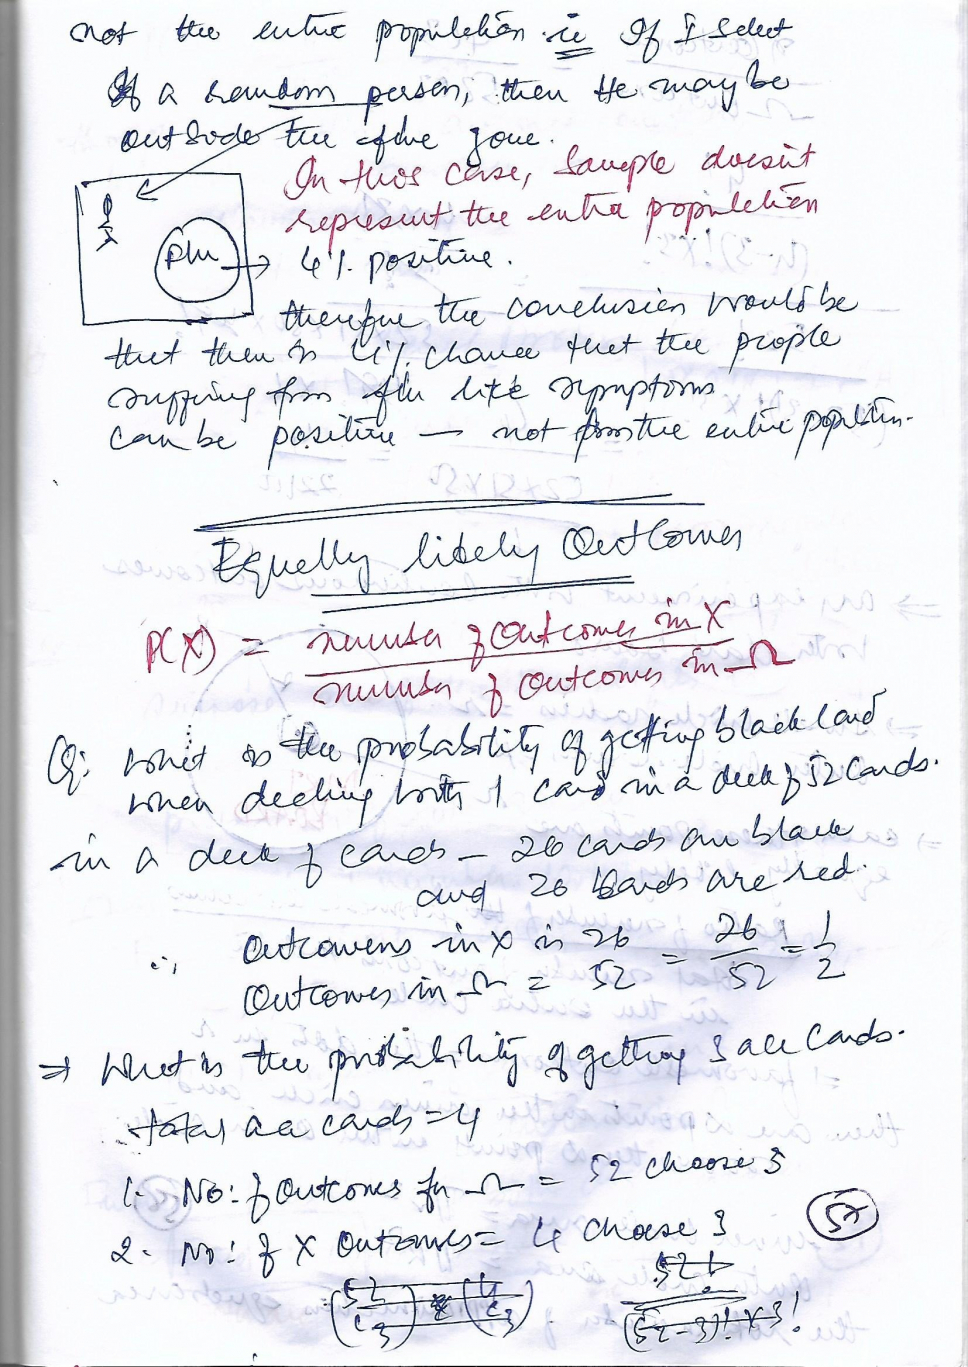 not the entire population ie If I select
If a random person, then He may be
outside the flu zone.
In this case, Sample doesn't
represent the entire population
flu → 4% positive.
therefore the conclusion would be
that there is 4% chance that the people
suffering from flu like symptoms
can be positive — not from the entire population.
Equally likely Outcomes
P(X) = number of outcomes in X
number of outcomes in Ω
Q: What is the probability of getting black card
when dealing with 1 card in a deck of 52 cards.
in a deck of cards – 26 cards are black
and 26 cards are red.
∴ Outcomes in X is 26 = 26/52 = 1/2
Outcomes in Ω = 52
⇒ What is the probability of getting 3 ace cards.
total ace cards = 4
1. No: of outcomes for Ω = 52 choose 3
2. No: of X Outcomes = 4 choose 3
57
(52 C3) (4 C3) 52!
(52-3)! × 3!